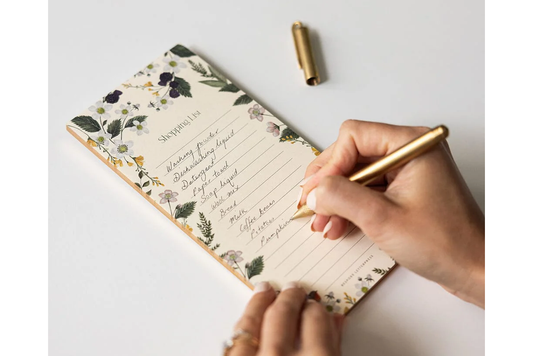 Shopping List
Washing powder
Dishwashing liquid
Detergent
Paper towel
Soap liquid
Milk
Bread
Coffee beans
Pumpkin